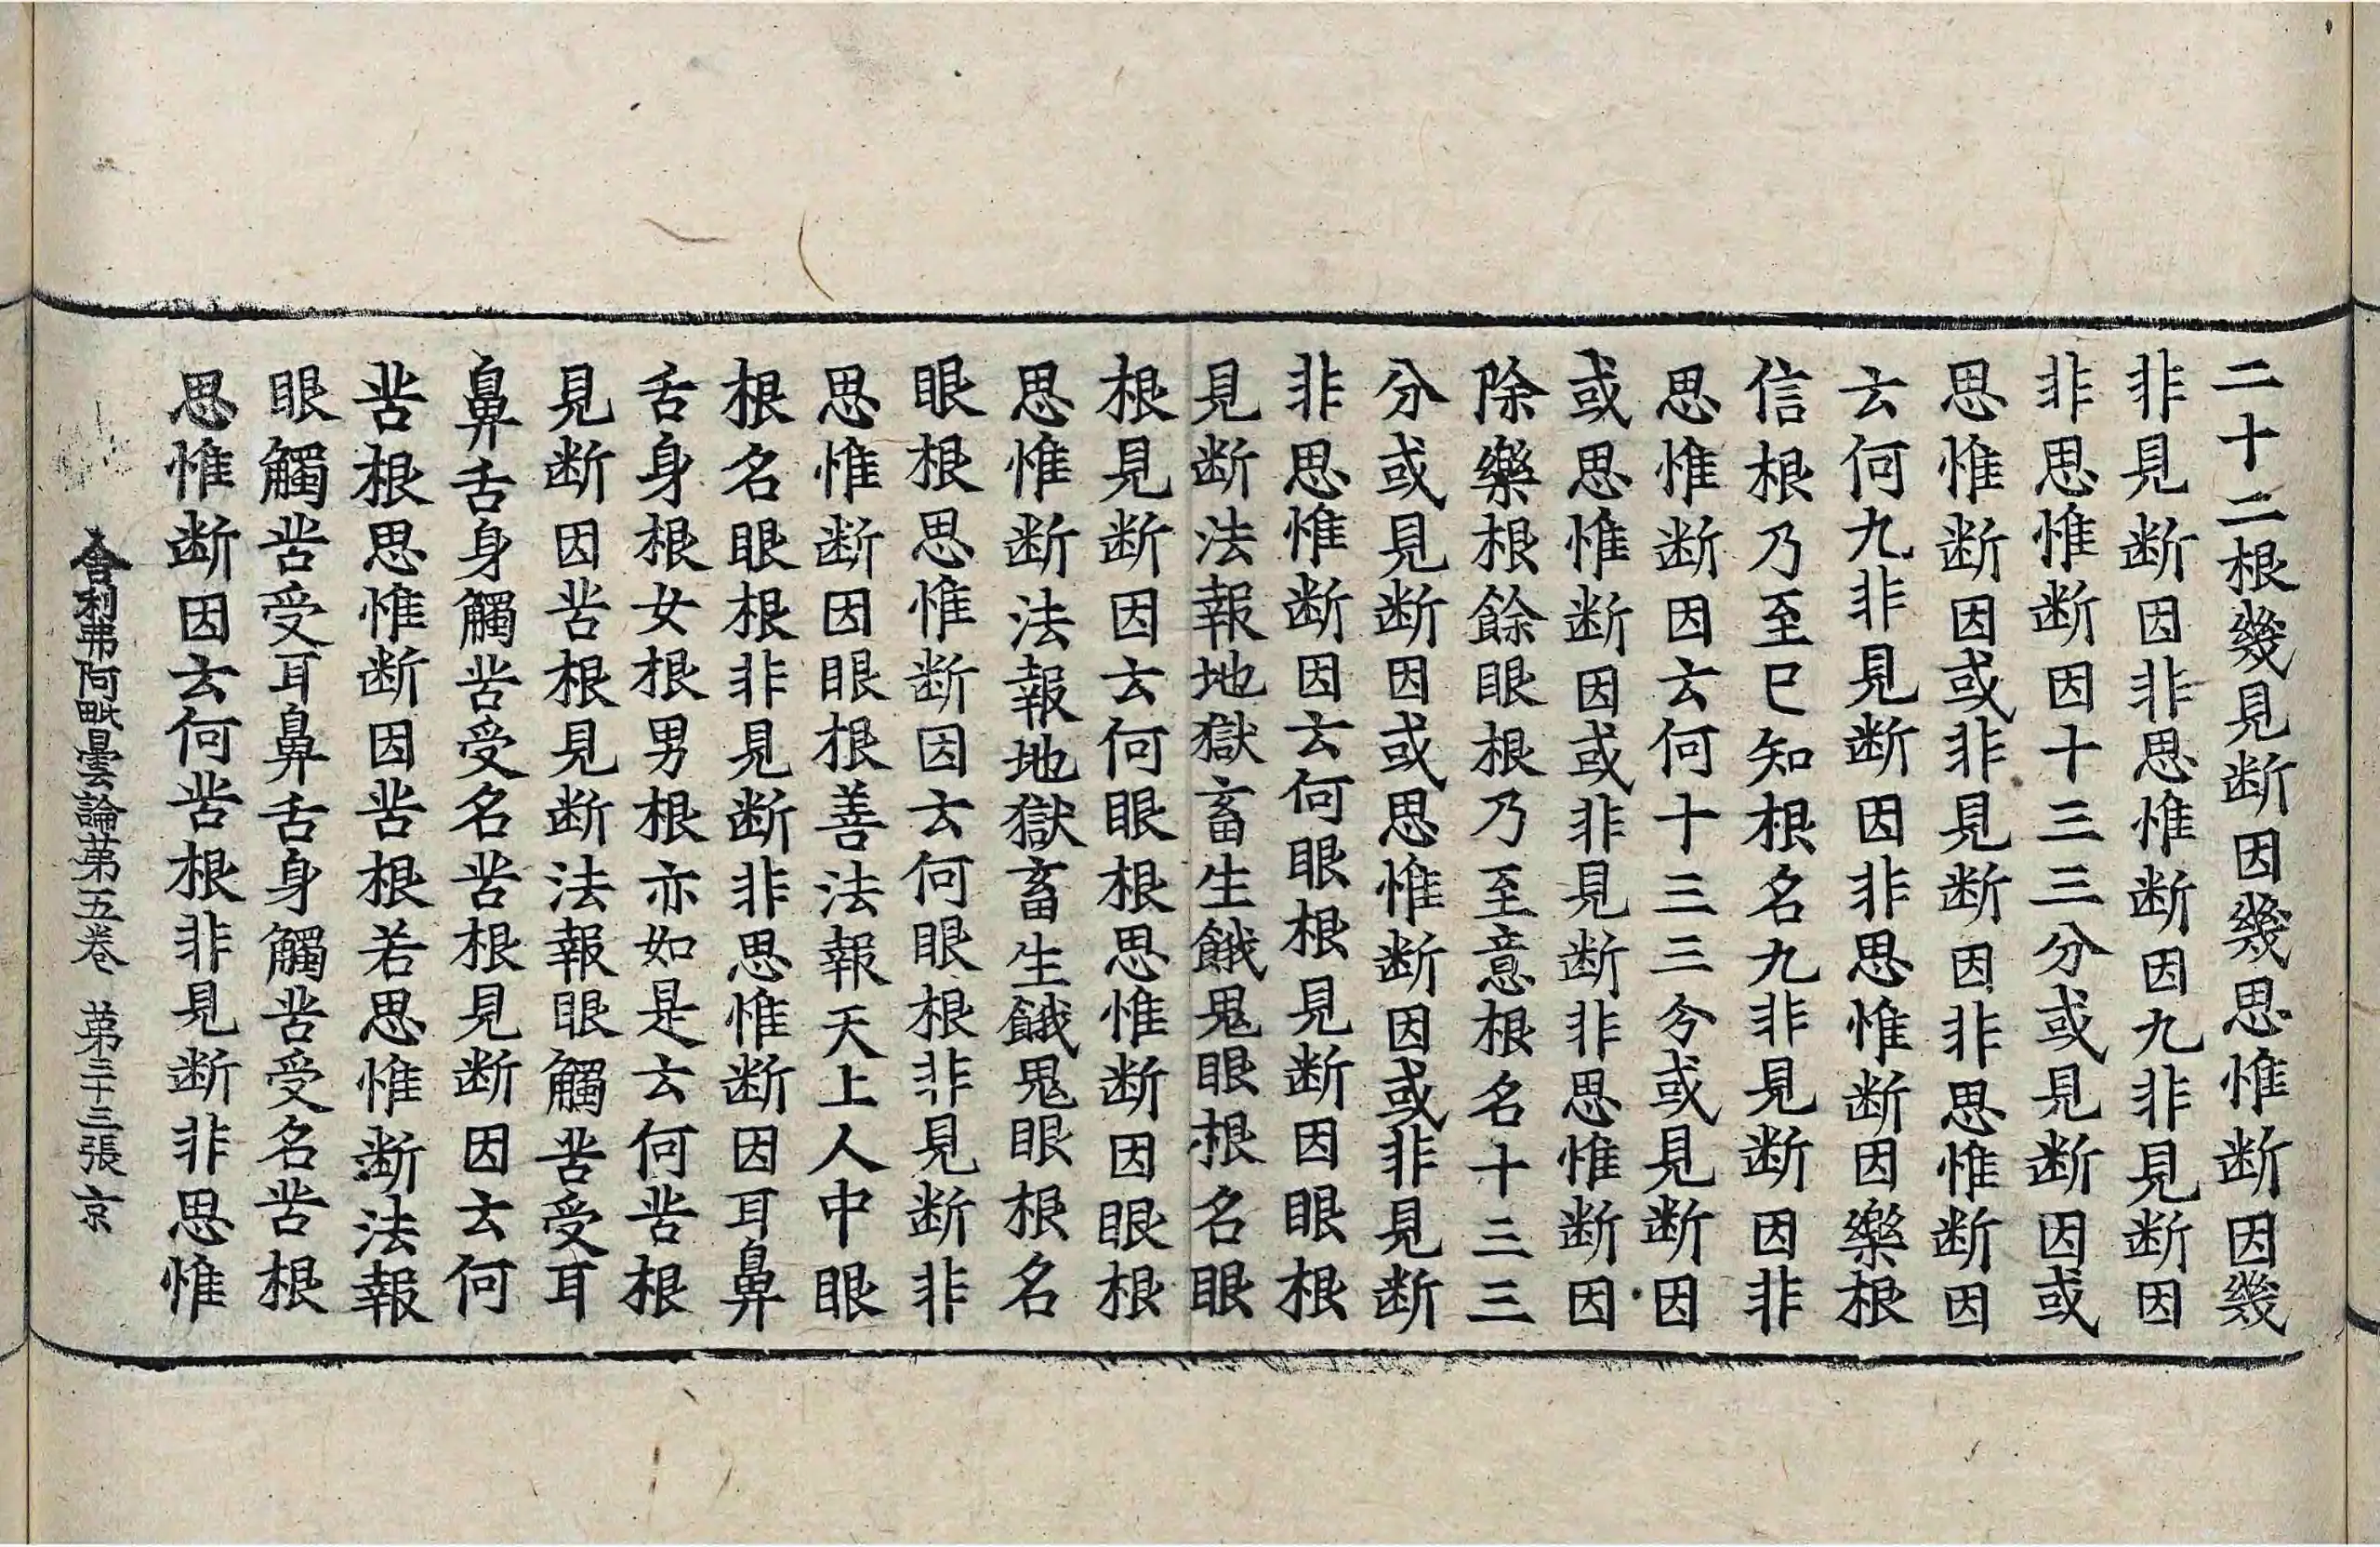 二十二根幾見断因幾思惟断因幾
非見断因非思惟断因九非見断因
非思惟断因十三三分或見断因或
思惟断因或非見断因非思惟断因
云何九非見断因非思惟断因樂根
信根乃至已知根名九非見断因非
思惟断因云何十三三分或見断因
或思惟断因或非見断非思惟断因
除樂根餘眼根乃至意根名十三三
分或見断因或思惟断因或非見断
非思惟断因云何眼根見断因眼根
見断法報地獄畜生餓鬼眼根名眼
根見断因云何眼根思惟断因眼根
思惟断法報地獄畜生餓鬼眼根名
眼根思惟断因云何眼根非見断非
思惟断因眼根善法報天上人中眼
根名眼根非見断非思惟断因耳鼻
舌身根女根男根亦如是云何苦根
見断因苦根見断法報眼觸苦受耳
鼻舌身觸苦受名苦根見断因云何
苦根思惟断因苦根若思惟断法報
眼觸苦受耳鼻舌身觸苦受名苦根
思惟断因云何苦根非見断非思惟
舍利弗阿毗曇論苐五卷 苐三十三張 京